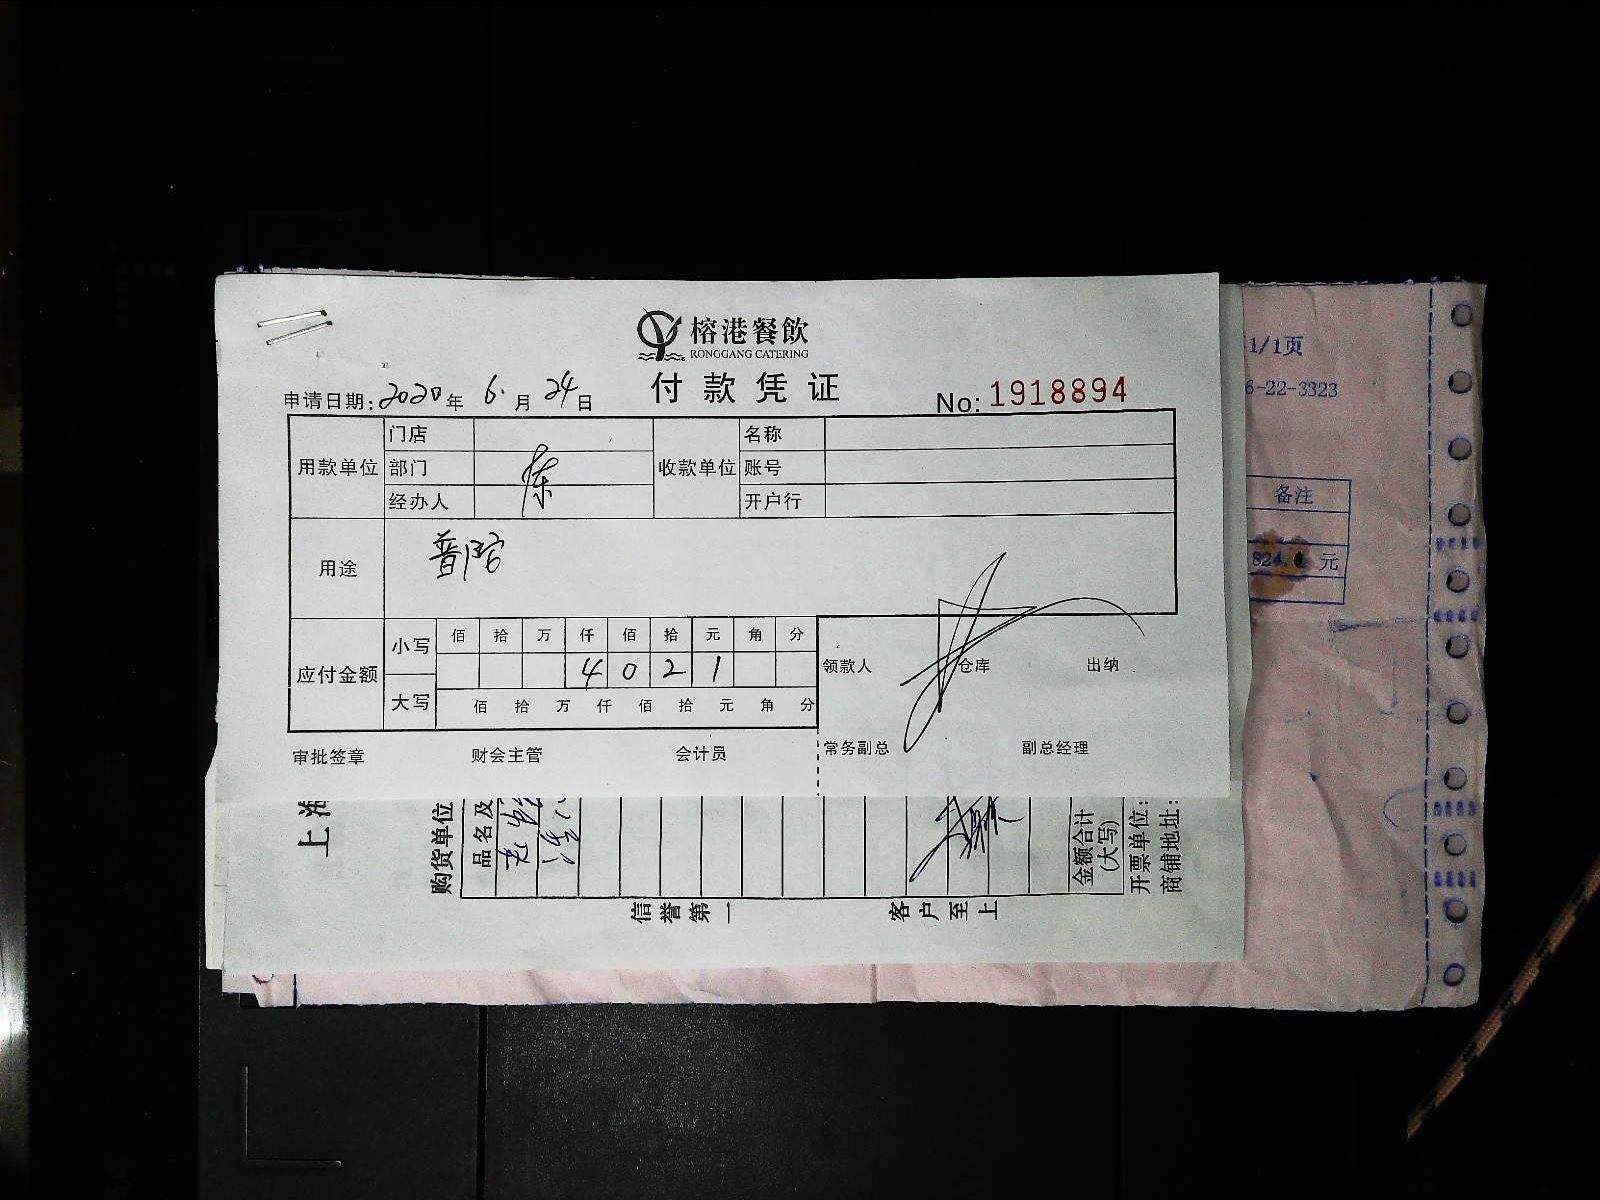 榕港餐飲
RONGGANG CATERING
付款凭证
申请日期: 2020年 6.月 24日
No: 1918894
用款单位 门店 收款单位 名称
部门 账号
经办人 陈 开户行
用途
应付金额 小写 佰 拾 万 仟 佰 拾 元 角 分
4 0 2 1
大写 佰 拾 万 仟 佰 拾 元 角 分
领款人 仓库 出纳
审批签章 财会主管 会计员 常务副总 副总经理
上海
购货单位
品名及
金额合计
(大写)
开票单位:
商铺地址:
信誉第一 客户至上
1/1页
6-22-3323
备注
元